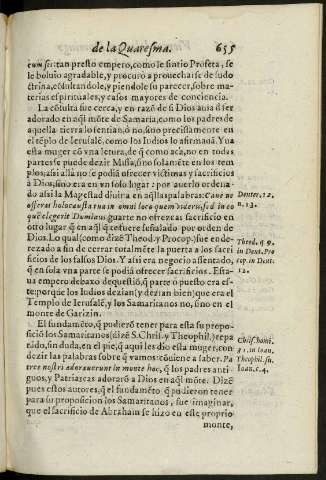 de la Quaresma. 635
cum sit: tan presto empero, como le sintio Profeta, se
le boluio agradable, y procurò aprouecharse de su do
ctrina, cõsultandole, y piendole su parecer, sobre ma-
terias espirituales, y casos mayores de conciencia.
La cõsulta fue cerca, y en razõ de si Dios auia d̃ ser
adorado en aq̃l mõte de Samaria, como los padres de
aquella tierra lo sentian, ò no, sino precissamente en
el tẽplo de Ierusalẽ. como los Iudios lo afirmauã. Ya
esta muger cõ vna letura, de q̃ como acà, no en todas
partes se puede dezir Missa, sino solamẽte en los tem
plos; assi allà no se podia ofrecer victimas y sacrificios
à Dios, sino era en vn solo lugar: por auerlo ordena-
do assi la Magestad diuina en aq̃llas palabras: Caue ne
offeras holocausta tua in omni loco quem videris, sed in eo
quẽ elegerit Dominus. guarte no ofrezcas sacrificio en
otro lugar q̃ en aq̃l q̃ estuuiere señalado por orden de
Dios. Lo qual (como dizẽ Theod. y Procop.) fue ende-
rezado a fin de cerrar totalmẽte la puerta a los sacri
ficios de los falsos Dios. Y assi era negocio assentado,
q̃ en sola vna parte se podià ofrecer sacrificios. Esta-
ua empero debaxo de questiõ, q̃ parte ò puesto era es-
te: porque los Iudios deziau (y deziau bien) que era el
Templo de Ierusalẽ, y los Samaritanos no, sino en el
monte de Garizin.
El fundamẽto, q̃ pudierõ tener para esta su propo-
siciõ los Samaritanos (dizẽ S. Chris. y Theophil.) repa
tido, sin duda, en el pie, q̃ aqui les dio esta muger, con
dezir las palabras sobre q̃ vamos: cõuiene a saber. Pa
tres nostri adorauerunt in monte hoc, q̃ los padres anti-
guos, y Patriarcas adorarõ a Dios en aq̃l mõte. Dizẽ
pues estos autores, q̃ el fundamẽto q̃ pudieron tener
para su proposicion los Samaritanos, fue imaginar,
que el sacrificio de Abrahan se hizo en este proprio
monte,
Deuter. 12.
n. 13.
Theod. q. 9.
in Deut. Pro
cop. in Deut.
12.
Chrisostomi.
in Ioan.
Theophil. su.
Ioan. c. 4.